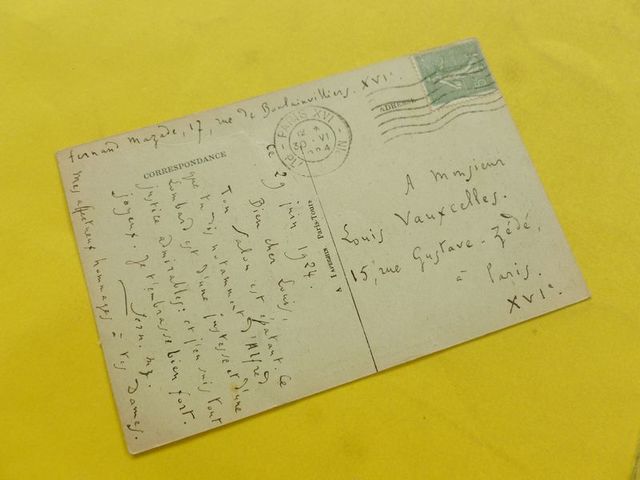 Fernand Mazade, 17, rue de Boulainvilliers. XVIe.
CORRESPONDANCE
ADRESSE
PARIS XVI
12 *
30 VI
1924
Ce 29 juin 1924.
Bien cher Louis,
Ton salon est épatant. Ce
que tu dis notamment d'Alfred
Lombard est d'une justesse et d'une
justice admirables : et j'en suis tout
joyeux. Je t'embrasse bien fort.
Fern. Mz.
Mes affectueux hommages à tes Dames.
A Monsieur
Louis Vauxcelles.
15, rue Gustave-Zédé,
à Paris.
XVIe.